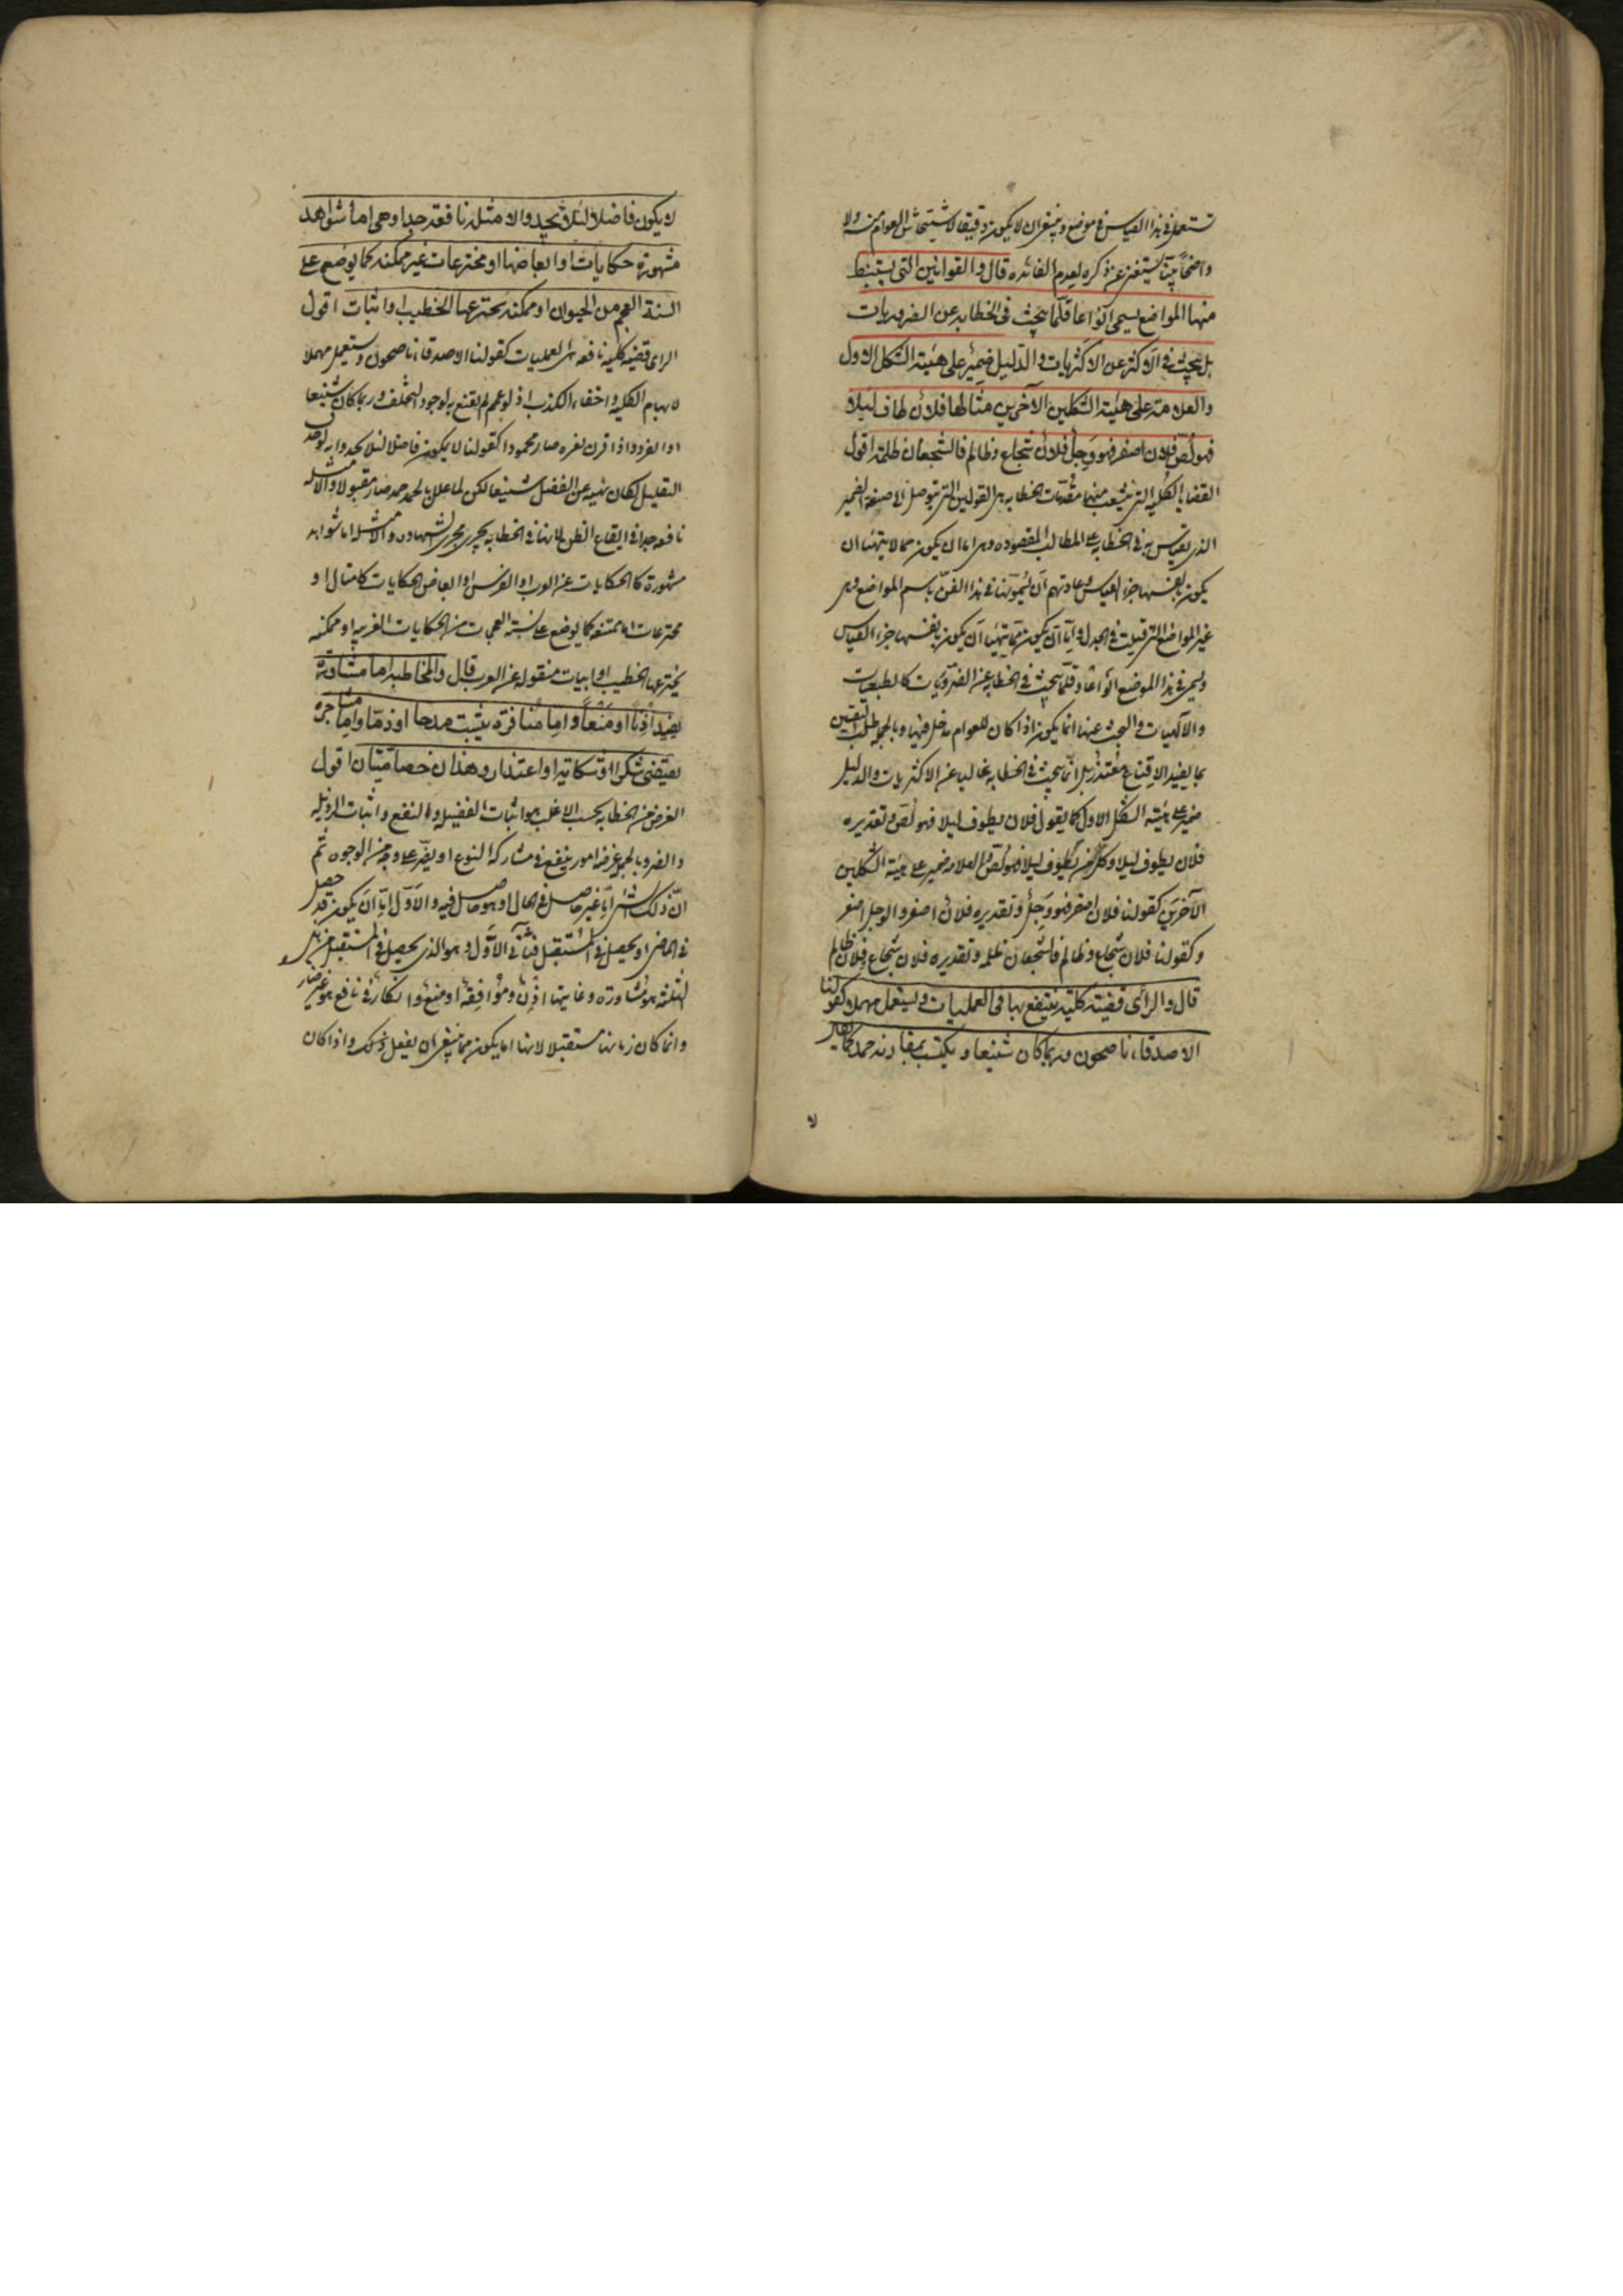 تستعمل في هذا القياس في موضع وينبغي ان لا يكون دقيقا لاستيحاش العوام منه ولا
واضحا بينا يستغنى عن ذكره لعدم الفائده قال والقوانين التي يستنبط
منها المواضع يسمى انواعا قلما يبحث في الخطابه عن الضروريات
بل يبحث في الاكثر عن الاكثريات والدليل ضمير على هيئة الشكل الاول
والعلامة على هيئة الشكلين الاخرين مثالها فلان طاف ليلا
فهو لص فلان اصفر فهو وجل فلان شجاع وظالم فالشجعان ظلمة اقول
القضايا الكليه التي يتشعب منها مقدمات الخطابه هي القوانين التي يتوصل الى صنعة الضمير
الذي يقاس به في الخطابه على المطالب المقصوده وهي اما ان يكون مما لا يتهيأ ان
يكون بانفسها جزء القياس وعادتهم ان يسمونها في هذا الفن باسم المواضع وهي
غير المواضع التي قيلت في الجدل واما ان يكون مما يتهيأ ان يكون بانفسها جزء القياس
ويسمى في هذا الموضع انواعا وقلما يبحث في الخطابه عن الضروريات كالطبيعيات
والالهيات والبحث عنها انما يكون اذا كان للعوام مدخل فيها وبالجمله طلب اليقين
بما يفيد الاقناع متعذر بل انما يبحث في الخطابه غالبا عن الاكثريات والدليل
ضمير على هيئة الشكل الاول كما يقول فلان يطوف ليلا فهو لص وتقديره
فلان يطوف ليلا وكل من يطوف ليلا فهو لص والعلامه ضمير على هيئة الشكلين
الاخرين كقولنا فلان اصفر فهو وجل وتقديره فلان اصفر والوجل اصفر
وكقولنا فلان شجاع وظالم فالشجعان ظلمه وتقديره فلان شجاع وفلان ظالم
قال والرأى قضيته كلية ينتفع بها في العمليات ويستعمل مهملا كقولنا
الاصدقاء ناصحون وربما كان شنيعا ويكتسب بمقارنه حمدا كما يقال
لا
لا يكون فاضلا لئلا يحسد والامثلة نافعة جدا وهي اما شواهد
مشهورة حكايات او ابعاضها او مخترعات غير ممكنة كما يوضع على
السنة العجم من الحيوان او ممكنة يخترعها الخطيب او ابيات اقول
الراى قضيه كليه نافعه في العمليات كقولنا الاصدقاء ناصحون ويستعمل مهملا
لايهام الكليه واخفاء الكذب اذ لو عمم لم يقنع به لوجود التخلف وربما كان شنيعا
اوا لفرد واذا قرن لغيره صار محمودا كقولنا لا يكون فاضلا لئلا يحسد
التعليل لكان نهيه عن الفضل شنيعا لكن لما علل بالحسد صار مقبولا والامثله
نافعه جدا في ايقاع الظن لانها في الخطابه يجري مجرى الشهادة والامثله اما شواهد
مشهورة كالحكايات عن العرب او الفرس او ابعاض الحكايات كامثال او
مخترعات اما ممتنعه كما يوضع على السنة العجمات من الحكايات الغريبه او ممكنه
يخترعها الخطيب او ابيات منقوله عن العرب قال والمخاطبه اما مشاورة
يفيد اذنا او منعا واما منافرة يثبت مدحا او ذما واما مشاجرة
يقتضي شكوا او شكاية او اعتذار وهذان خصاميتان اقول
الغرض من الخطابه بحسب الاغلب هو اثبات الفضيله والنفع واثبات الرذيله
والضر وبالجمله غرضه امور ينفع في مشاركة النوع او يضر على وجه من الوجوه ثم
ان ذلك الشئ اما غير حاصل في الحال او هو حاصل فيه والاول اما ان يكون قد حصل
في الماضي او يحصل في المستقبل فثاني الاول وهو الذي يحصل في المستقبل من
الثلثه هو مشاورة وغايتها اذن وموافقة او منع وانكار في نافع هو غير ضار
وانما كان زمانها مستقبلا لانها انما يكون مما ينبغي ان يفعل ذلك واذا كان